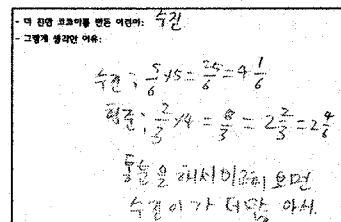 - 더 진한 코코아를 만든 어린이: 수진
- 그렇게 생각한 이유:
수진; 5/6 × 5 = 25/6 = 4 1/6
형준; 2/3 × 4 = 8/3 = 2 2/3 = 2 4/6
통분을 해서 비교해 보면
수진이가 더 많 아서.